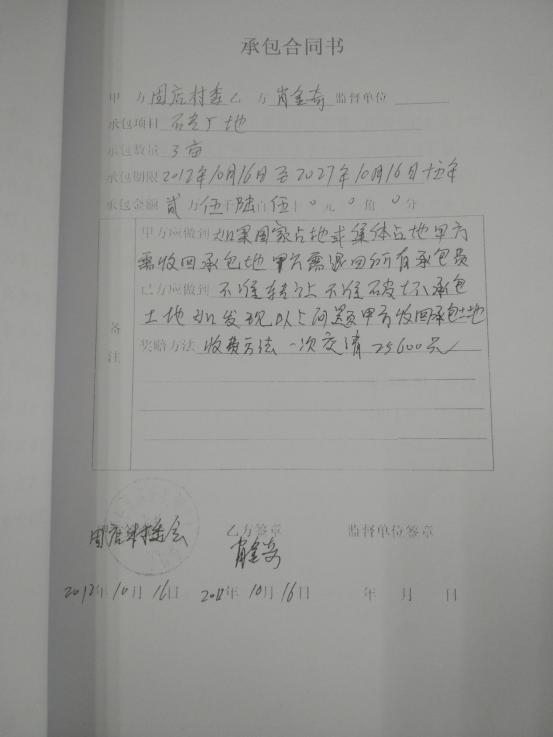 承包合同书
甲 方 周店村委 乙 方 肖金奇 监督单位
承包项目 石专厂地
承包数量 3亩
承包期限 2012年10月16日至2027年10月16日十五年
承包金额 贰万伍千陆百伍十0元0角0分
甲方应做到 如果国家占地或集体占地甲方
需收回承包地 甲方需退回所有承包费
乙方应做到 不准转让 不准破坏承包
土地 如发现以上问题甲方收回承包土地
备注
奖赔方法 收费方法 一次交清 25600元
周店村委会 乙方签章 监督单位签章
肖金奇
2012年10月16日 2012年10月16日 年 月 日